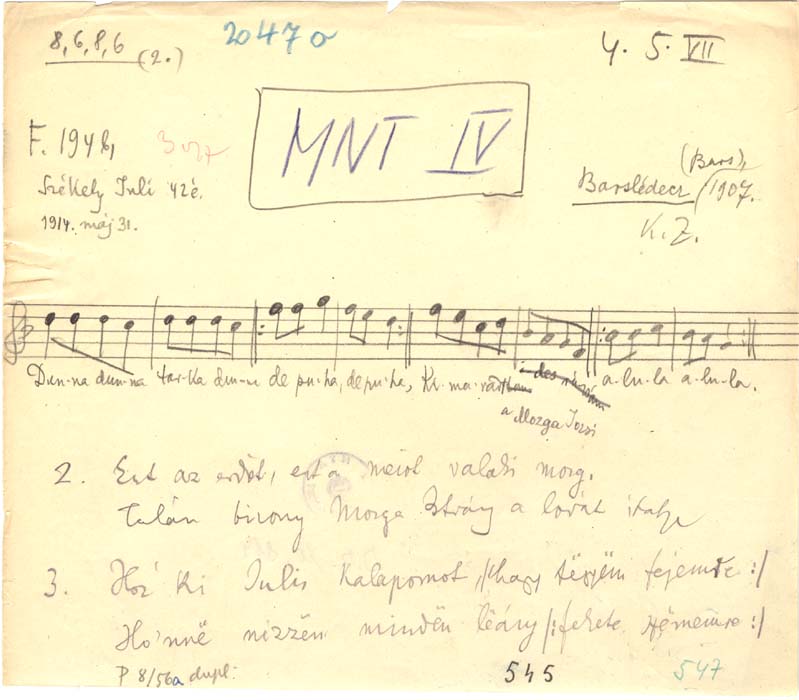 8, 6, 8, 6 (2.)
20470
4. 5. VII
MNT IV
F. 1948,
Székely Juli 42é.
1914. máj 31.
(Bars),
Barslédecz 1907.
K. Z.
Dun-na dun-na tar-ka dun-na de pu-ha, de pu-ha, Ki-ma-radt a-lu-la a-lu-la.
a Mozga Jozsi
2. Ezt az erdőt, ezt a mezőt valaki
Talán bizony Mozga a lovát
3. Hoz' ki Julis kalapomot, /:hagy tëgyëm fejemre:/
Ho'nnë nizzën mindën lëány /:fekete szëmeimre:/
P 8/56a dupl:
545
547